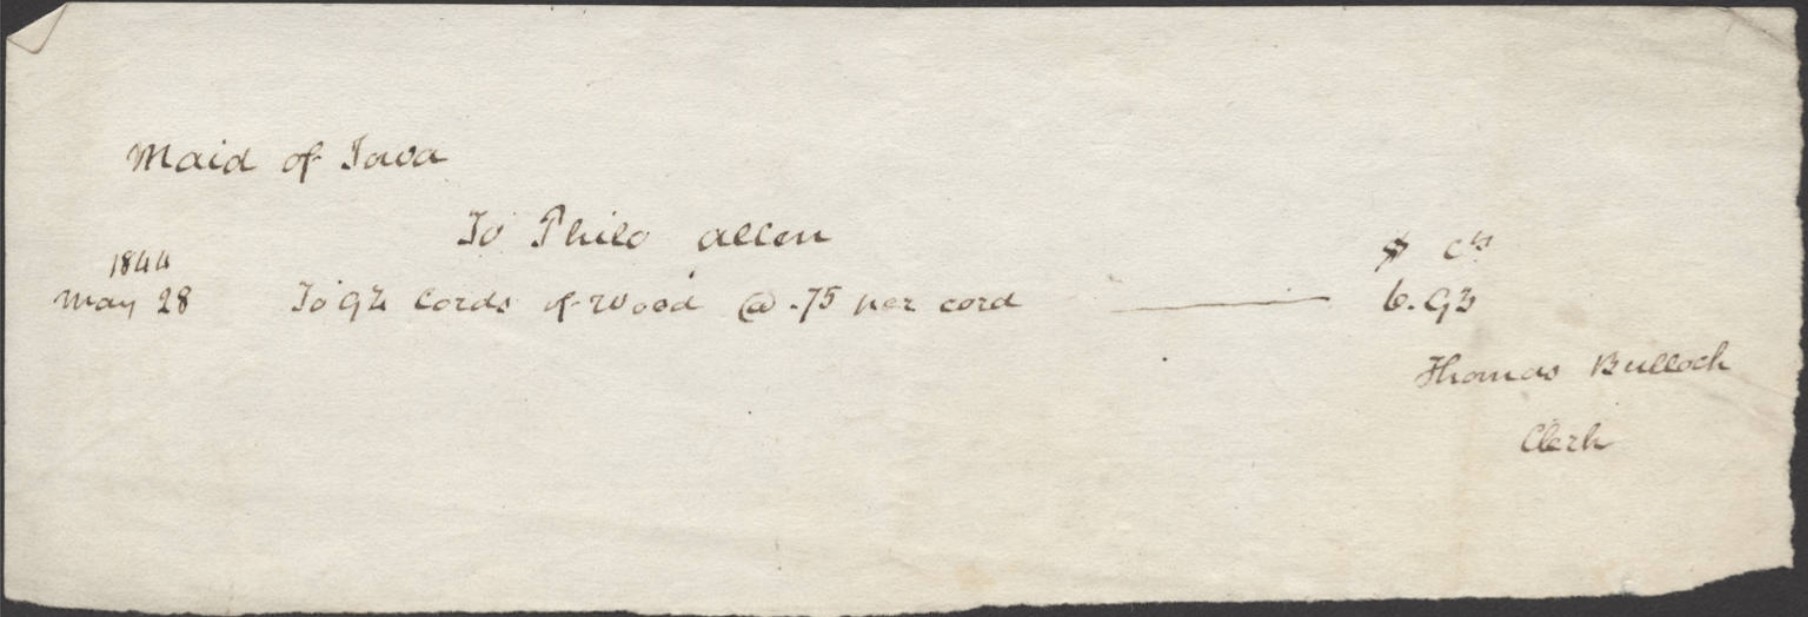 Maid of Iowa
To Philo Allen
1844 $ cts
May 28 To 9¼ Cords of Wood @ .75 per cord 6.93
Thomas Bullock
Clerk